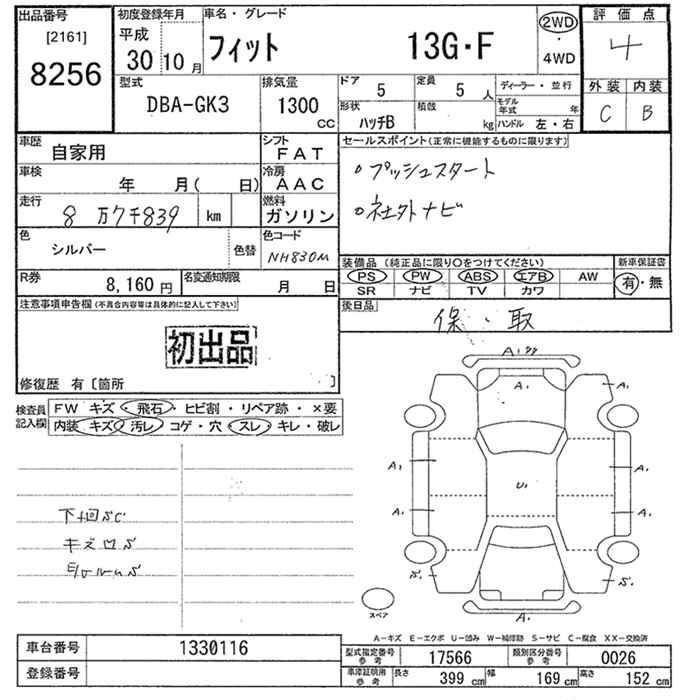 出品番号
[2161]
8256
初度登録年月
平成
30 10 月
車名・グレード
フィット 13G・F
2WD
・
4WD
評価点
4
外装 内装
C B
型式
DBA-GK3
排気量
1300
CC
ドア
5
定員
5 人
形状
ハッチB
積載
kg
ディーラー・並行
モデル年式 年
ハンドル 左・右
車歴
自家用
シフト
FAT
車検
年 月( 日)
冷房
AAC
走行
8 万7千839 km
燃料
ガソリン
色
シルバー
色替
色コード
NH830M
R券
8,160 円
名変通知期限
月 日
セールスポイント(正常に機能するものに限ります)
○プッシュスタート
○社外ナビ
装備品 (純正品に限り○をつけてください)
PS PW ABS エアB AW
SR ナビ TV カワ
新車保証書
有・無
後日品
保・取
注意事項申告欄(不具合内容等は具体的に記入して下さい)
初出品
修復歴 有〔箇所 〕
検査員記入欄
FW キズ・飛石・ヒビ割・リペア跡・×要
内装 キズ・汚レ・コゲ・穴・スレ・キレ・破レ
下廻SC
キズ
A1
A1
A1
A1
A1
A1
U1
A1
A1
S1
S1
A1
スペア
A−キズ E−エクボ U−凹み W−補修跡 S−サビ C−腐食 XX−交換済
車台番号 1330116
登録番号
型式指定番号
参考
17566
類別区分番号
参考
0026
車庫証明用
参考
長さ 399 cm 幅 169 cm 高さ 152 cm